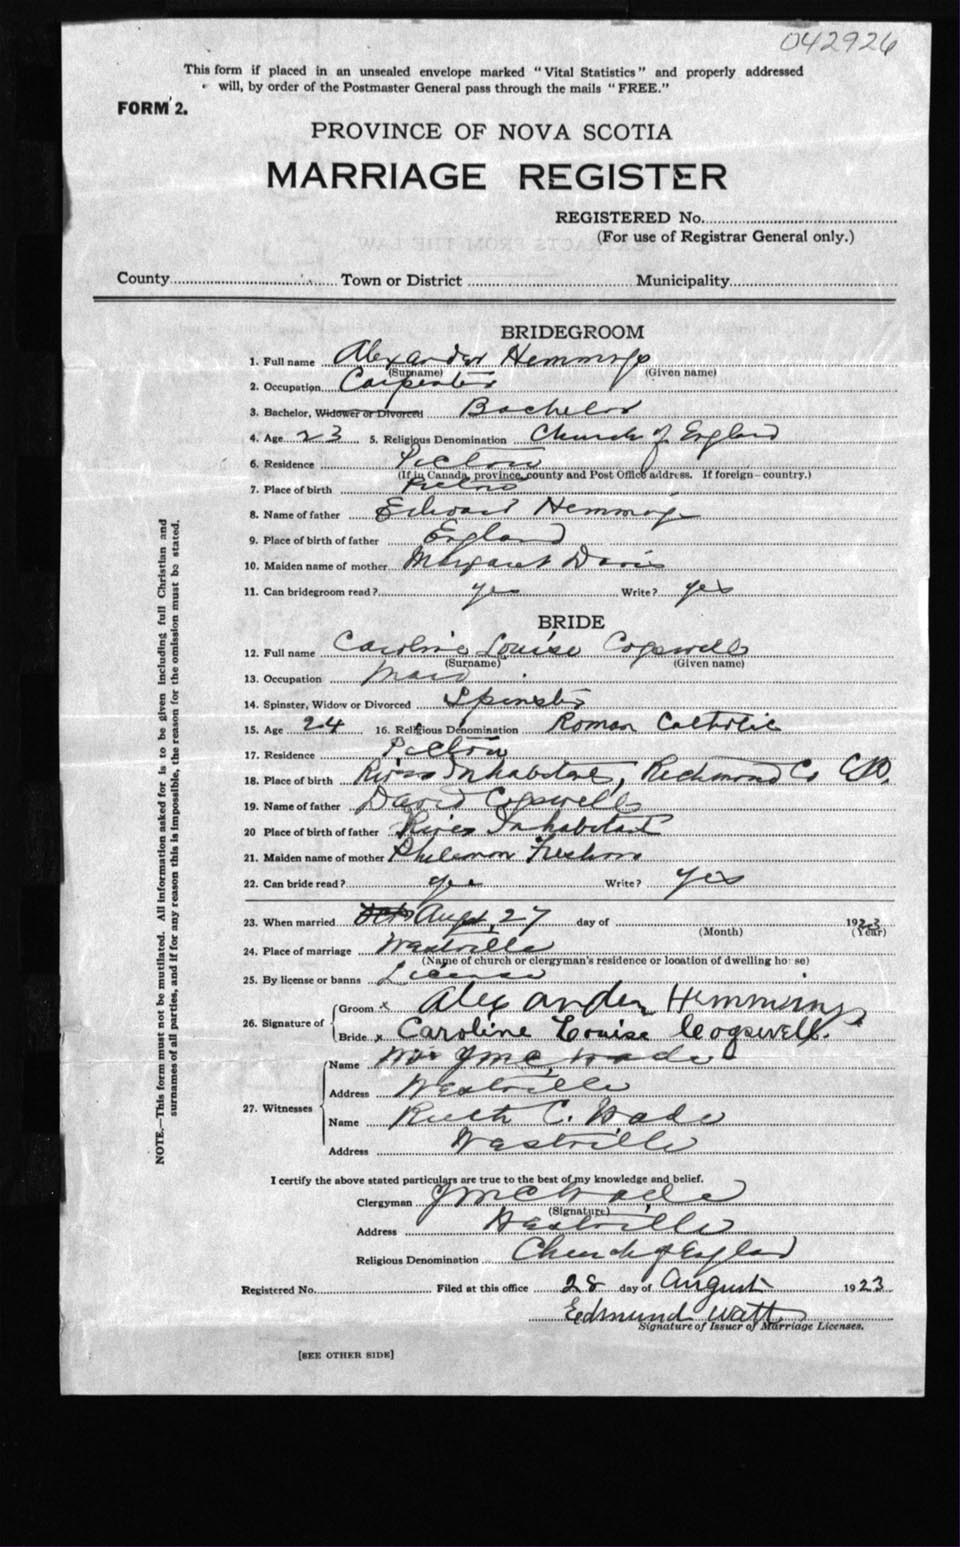 042926
This form if placed in an unsealed envelope marked "Vital Statistics" and properly addressed
will, by order of the Postmaster General pass through the mails "FREE."
FORM 2.
PROVINCE OF NOVA SCOTIA
MARRIAGE REGISTER
REGISTERED No.
(For use of Registrar General only.)
County Town or District Municipality
BRIDEGROOM
1. Full name Alexander Hemmings
(Surname) (Given name)
2. Occupation Carpenter
3. Bachelor, Widower or Divorced Bachelor
4. Age 23 5. Religious Denomination Church of England
6. Residence Pictou
(If in Canada, province, county and Post Office address. If foreign- country.)
7. Place of birth Pictou
8. Name of father Edward Hemmings
9. Place of birth of father England
10. Maiden name of mother Margaret Davis
11. Can bridegroom read? yes Write? yes
BRIDE
12. Full name Caroline Louise Cogswell
(Surname) (Given name)
13. Occupation Maid
14. Spinster, Widow or Divorced Spinster
15. Age 24 16. Religious Denomination Roman Catholic
17. Residence Pictou
18. Place of birth River Inhabitant, Richmond Co
19. Name of father David Cogswell
20 Place of birth of father River Inhabitant
21. Maiden name of mother Philemon
22. Can bride read? yes Write? yes
23. When married Augt, 27 day of 1923
(Month) (Year)
24. Place of marriage Westville
(Name of church or clergyman's residence or location of dwelling house)
25. By license or banns License
26. Signature of
Groom x Alexander Hemmings
Bride x Caroline Louise Cogswell.
27. Witnesses
Name Mrs J M C Wade
Address Westville
Name Ruth C. Wade
Address Westville
I certify the above stated particulars are true to the best of my knowledge and belief.
Clergyman J M C Wade
(Signature)
Address Westville
Religious Denomination Church of England
Registered No. Filed at this office 28 day of August 1923
Edmund Watt
Signature of Issuer of Marriage Licenses.
[SEE OTHER SIDE]
NOTE.—This form must not be mutilated. All information asked for is to be given including full Christian and
surnames of all parties, and if for any reason this is impossible, the reason for the omission must be stated.